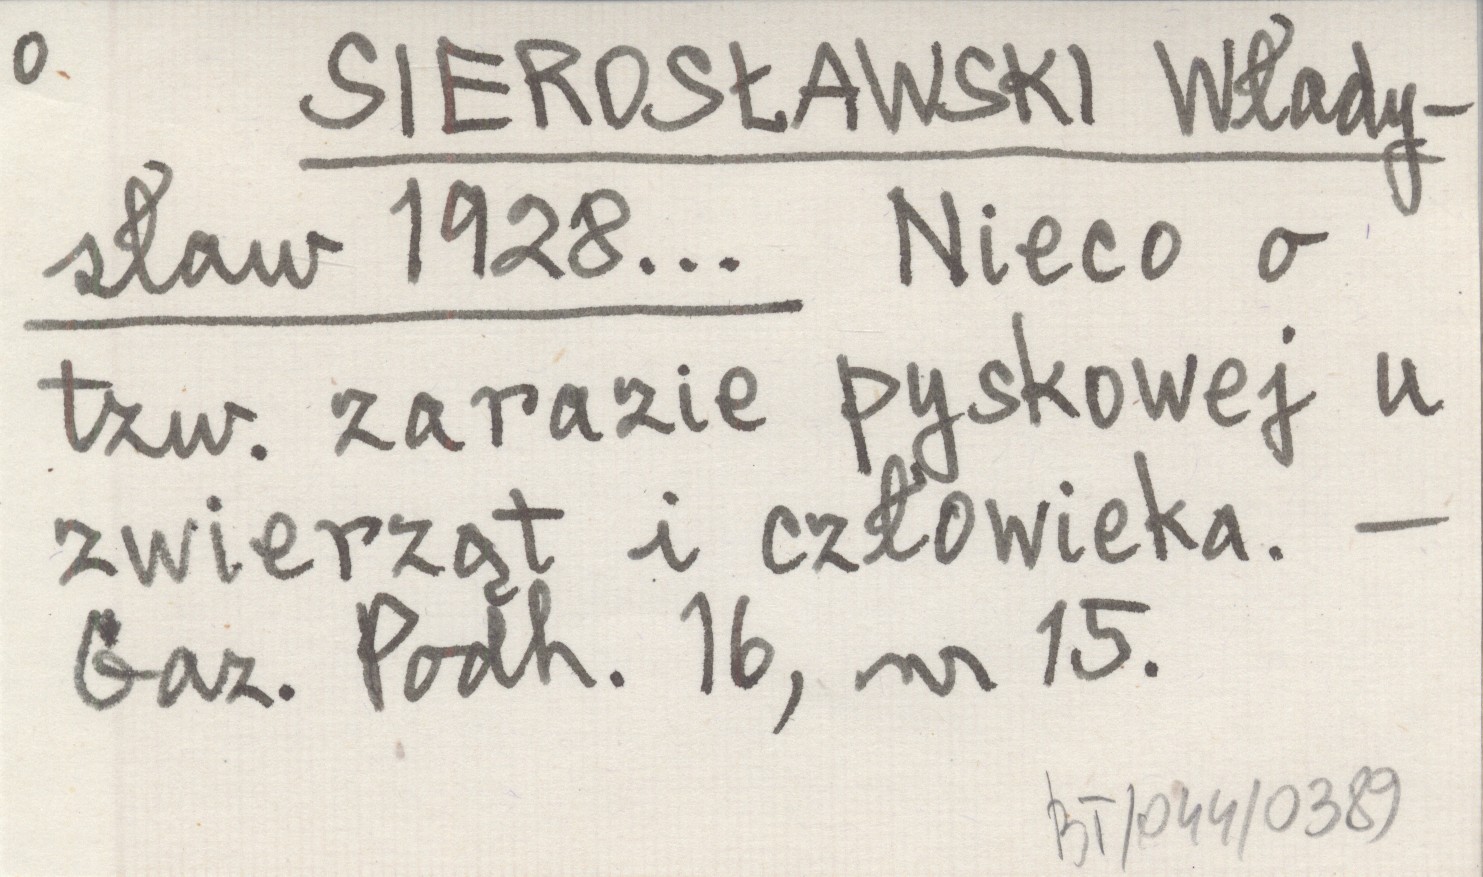 o SIEROSŁAWSKI Włady-
sław 1928... Nieco o
tzw. zarazie pyskowej u
zwierząt i człowieka. —
Gaz. Podh. 16, nr 15.
BT/044/0389